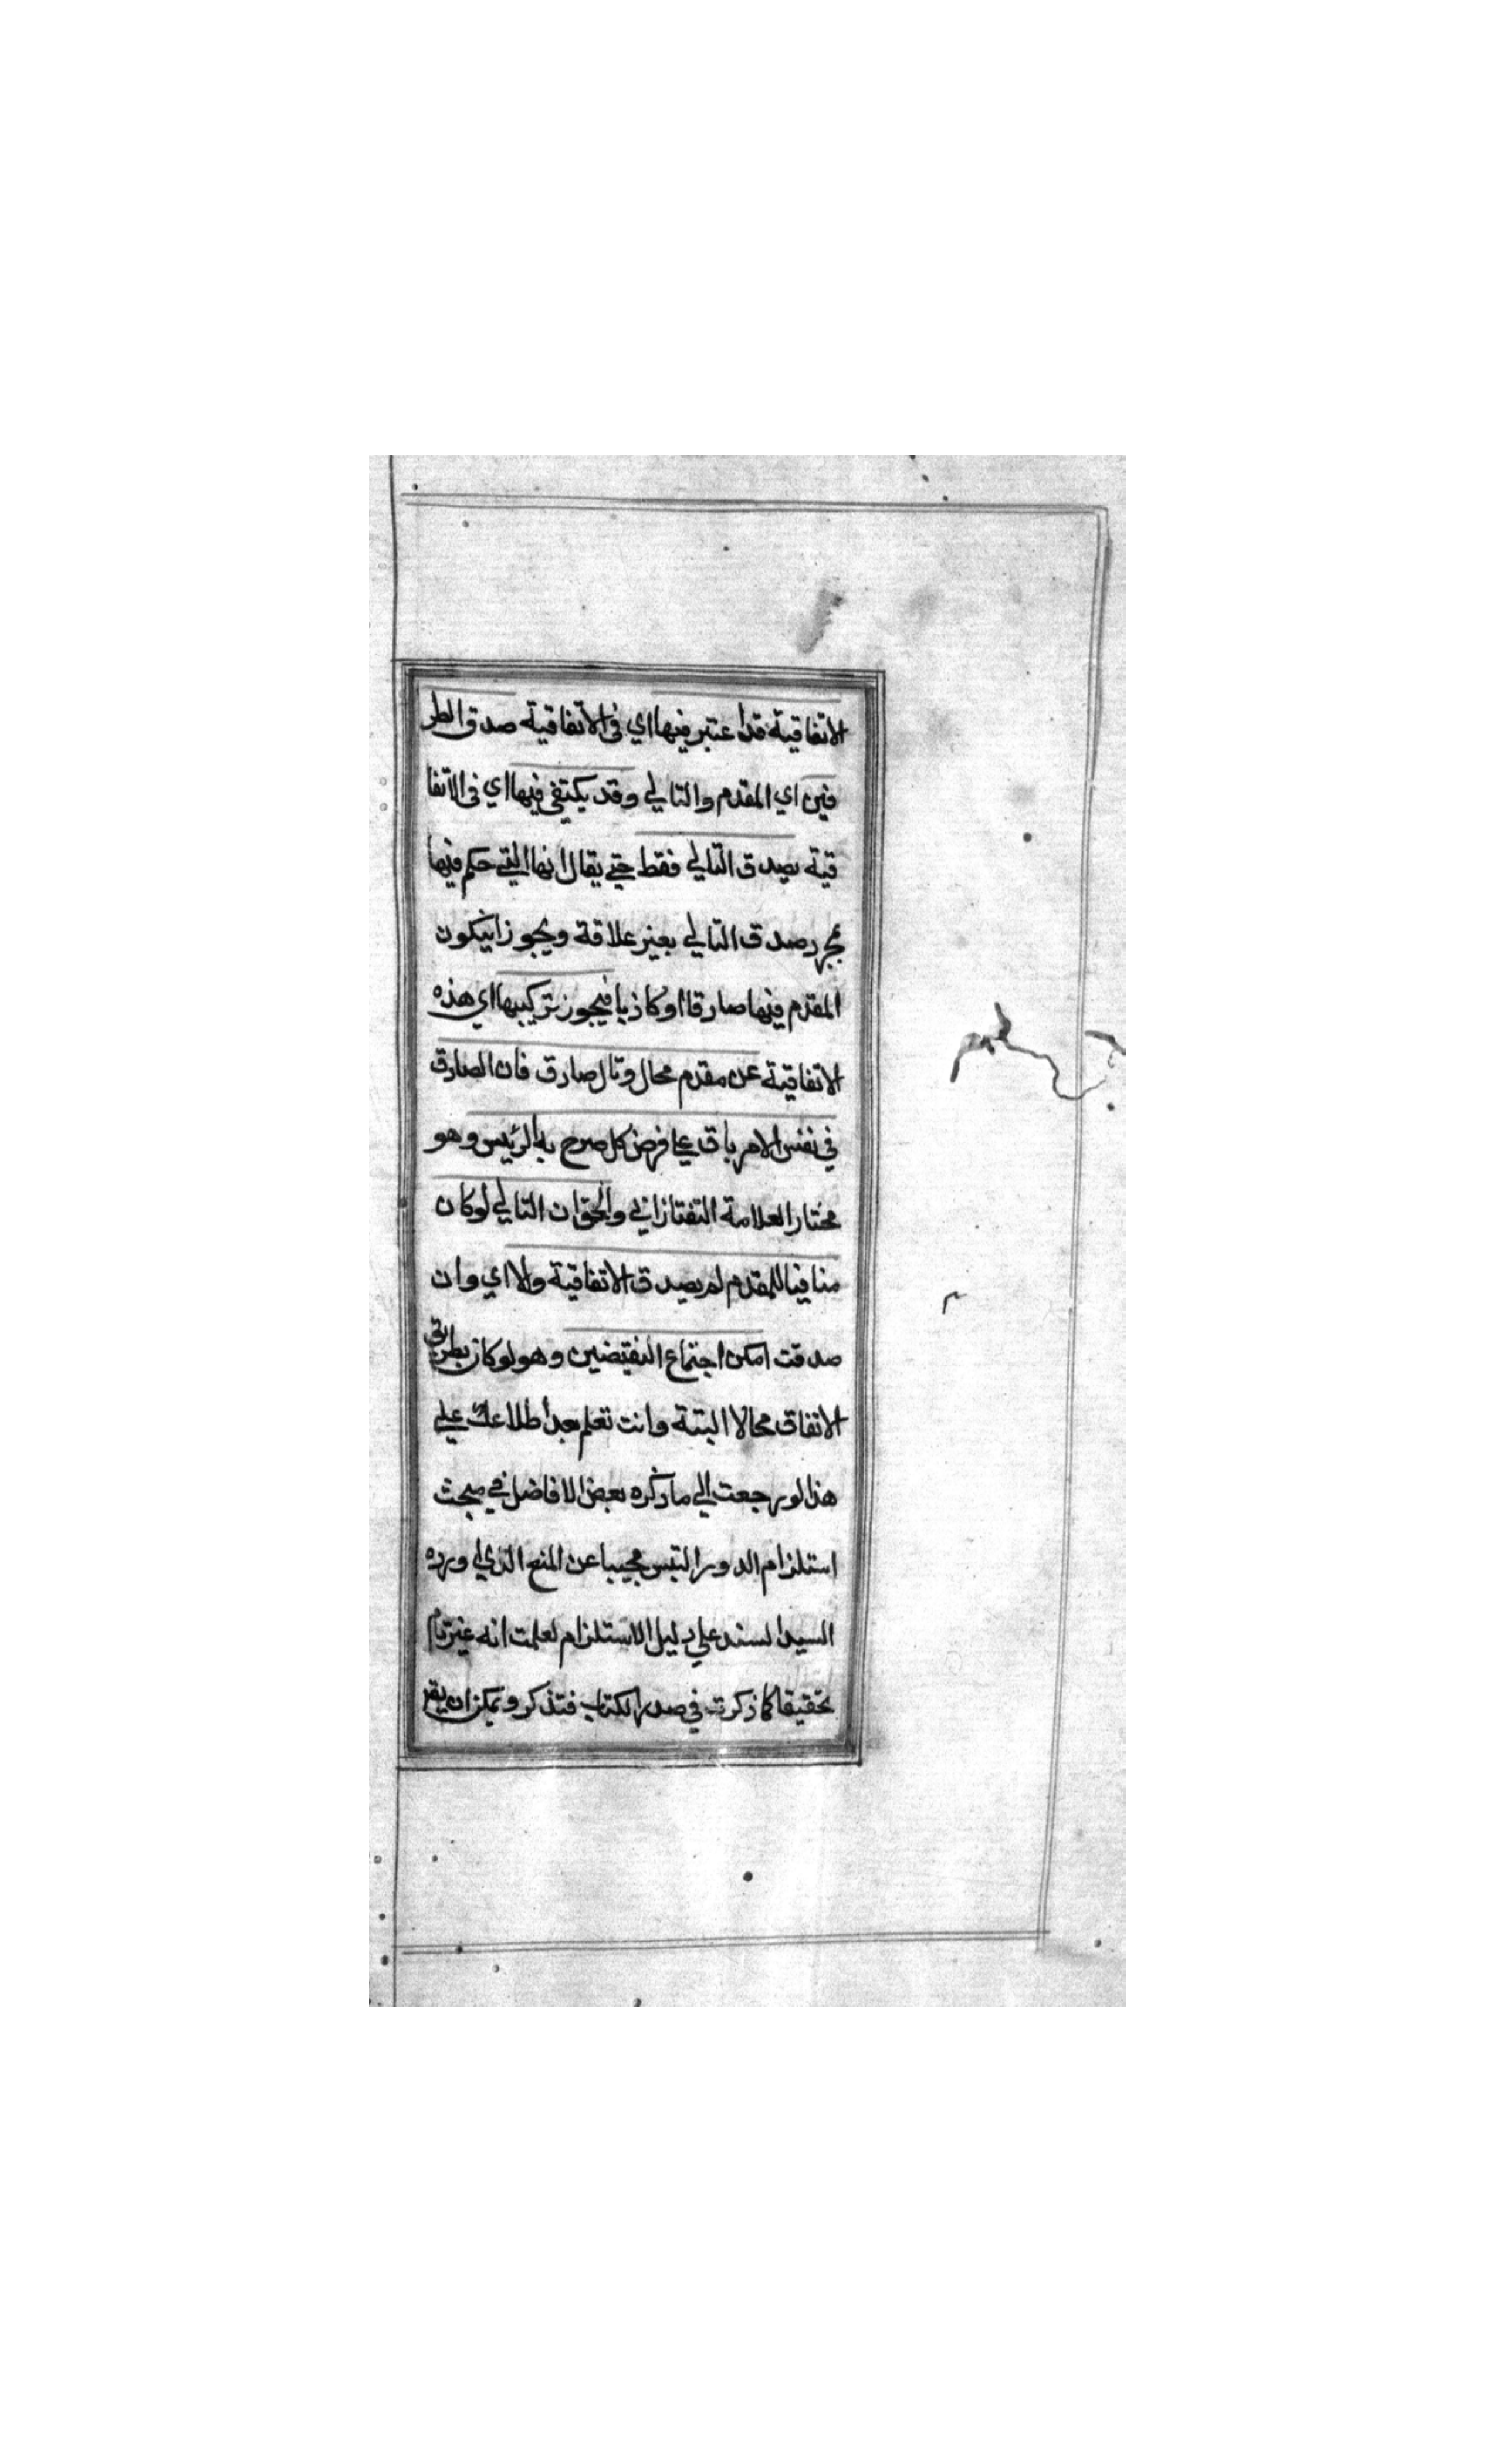 الاتفاقية قد اعتبر فيها اي في الاتفاقية صدق الطر
فين اي المقدم والتالي وقد يكتفى فيها اي في الاتفا
قية بصدق التالي فقط حتى يقال انها التي حكم فيها
بمجرد صدق التالي بغير علاقة ويجوز انيكون
المقدم فيها صادقا او كاذبا فيجوز تركيبها اي هذه
الاتفاقية عن مقدم محال وتال صادق فان الصادق
في نفس الامر باق على فرض كل صرح به الرئيس وهو
مختار العلامة التفتازاني والحق ان التالي لو كان
منافيا للمقدم لم يصدق الاتفاقية والا اي وان
صدقت امكن اجتماع النقيضين وهو لو كان بطريق
الاتفاق محالا البتة وانت تعلم بعد اطلاعك علي
هذا لو رجعت الي ما ذكره بعض الافاضل في مبحث
استلزام الدور التس مجيبا عن المنع الذي اورده
السيد السند علي دليل الاستلزام لعلمت انه غير تام
تحقيقا كما ذكرت في صدر الكتاب فتذكر ويمكن ان يقر